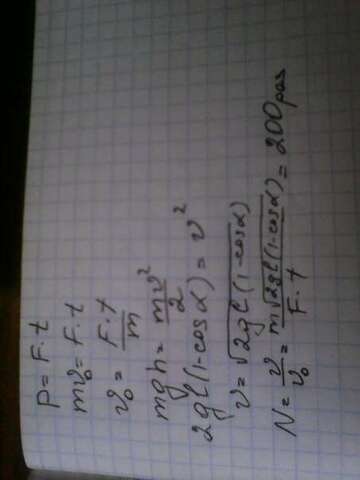 p = F·t
mv₀ = F·t
v₀ = F·t/m
mgh = mv²/2
2gl(1-cosα) = v²
v = √2gl(1-cosα)
N = v/v₀ = m√2gl(1-cosα)/F·t = 200 раз